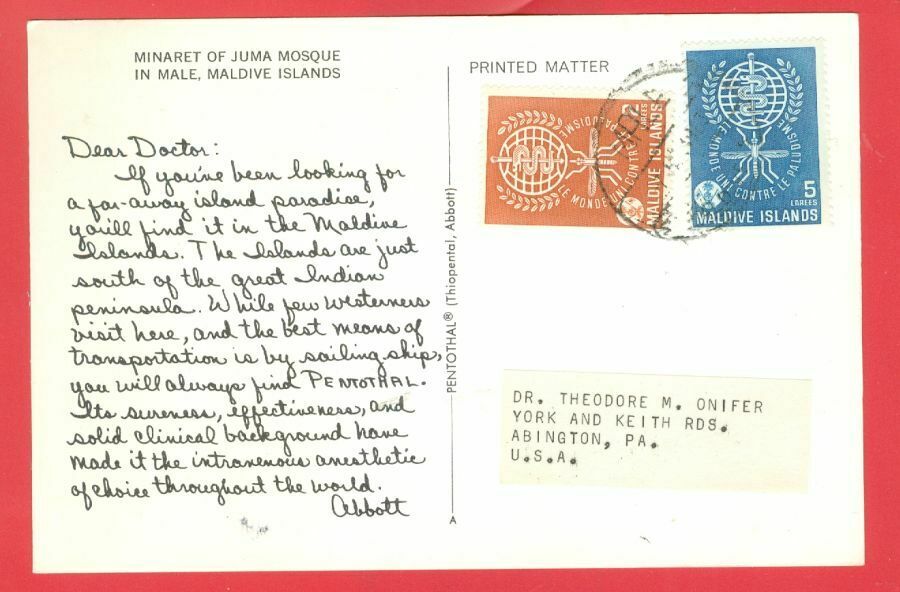 MINARET OF JUMA MOSQUE
IN MALE, MALDIVE ISLANDS
Dear Doctor:
If you've been looking for
a far-away island paradise,
you'll find it in the Maldive
Islands. The Islands are just
south of the great Indian
peninsula. While few westerners
visit here, and the best means of
transportation is by sailing ship,
you will always find PENTOTHAL.
Its sureness, effectiveness, and
solid clinical background have
made it the intravenous anesthetic
of choice throughout the world.
Abbott
PENTOTHAL® (Thiopental, Abbott)
A
PRINTED MATTER
LE MONDE UNI CONTRE LE PALUDISME
LAREES
MALDIVE ISLANDS
LE MONDE UNI CONTRE LE PALUDISME
5
LAREES
MALDIVE ISLANDS
DR. THEODORE M. ONIFER
YORK AND KEITH RDS.
ABINGTON, PA.
U.S.A.